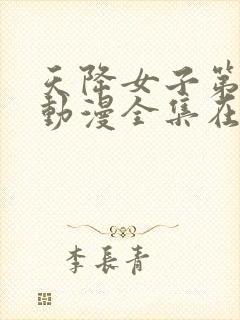 天降女子第
動漫全集在
李長青